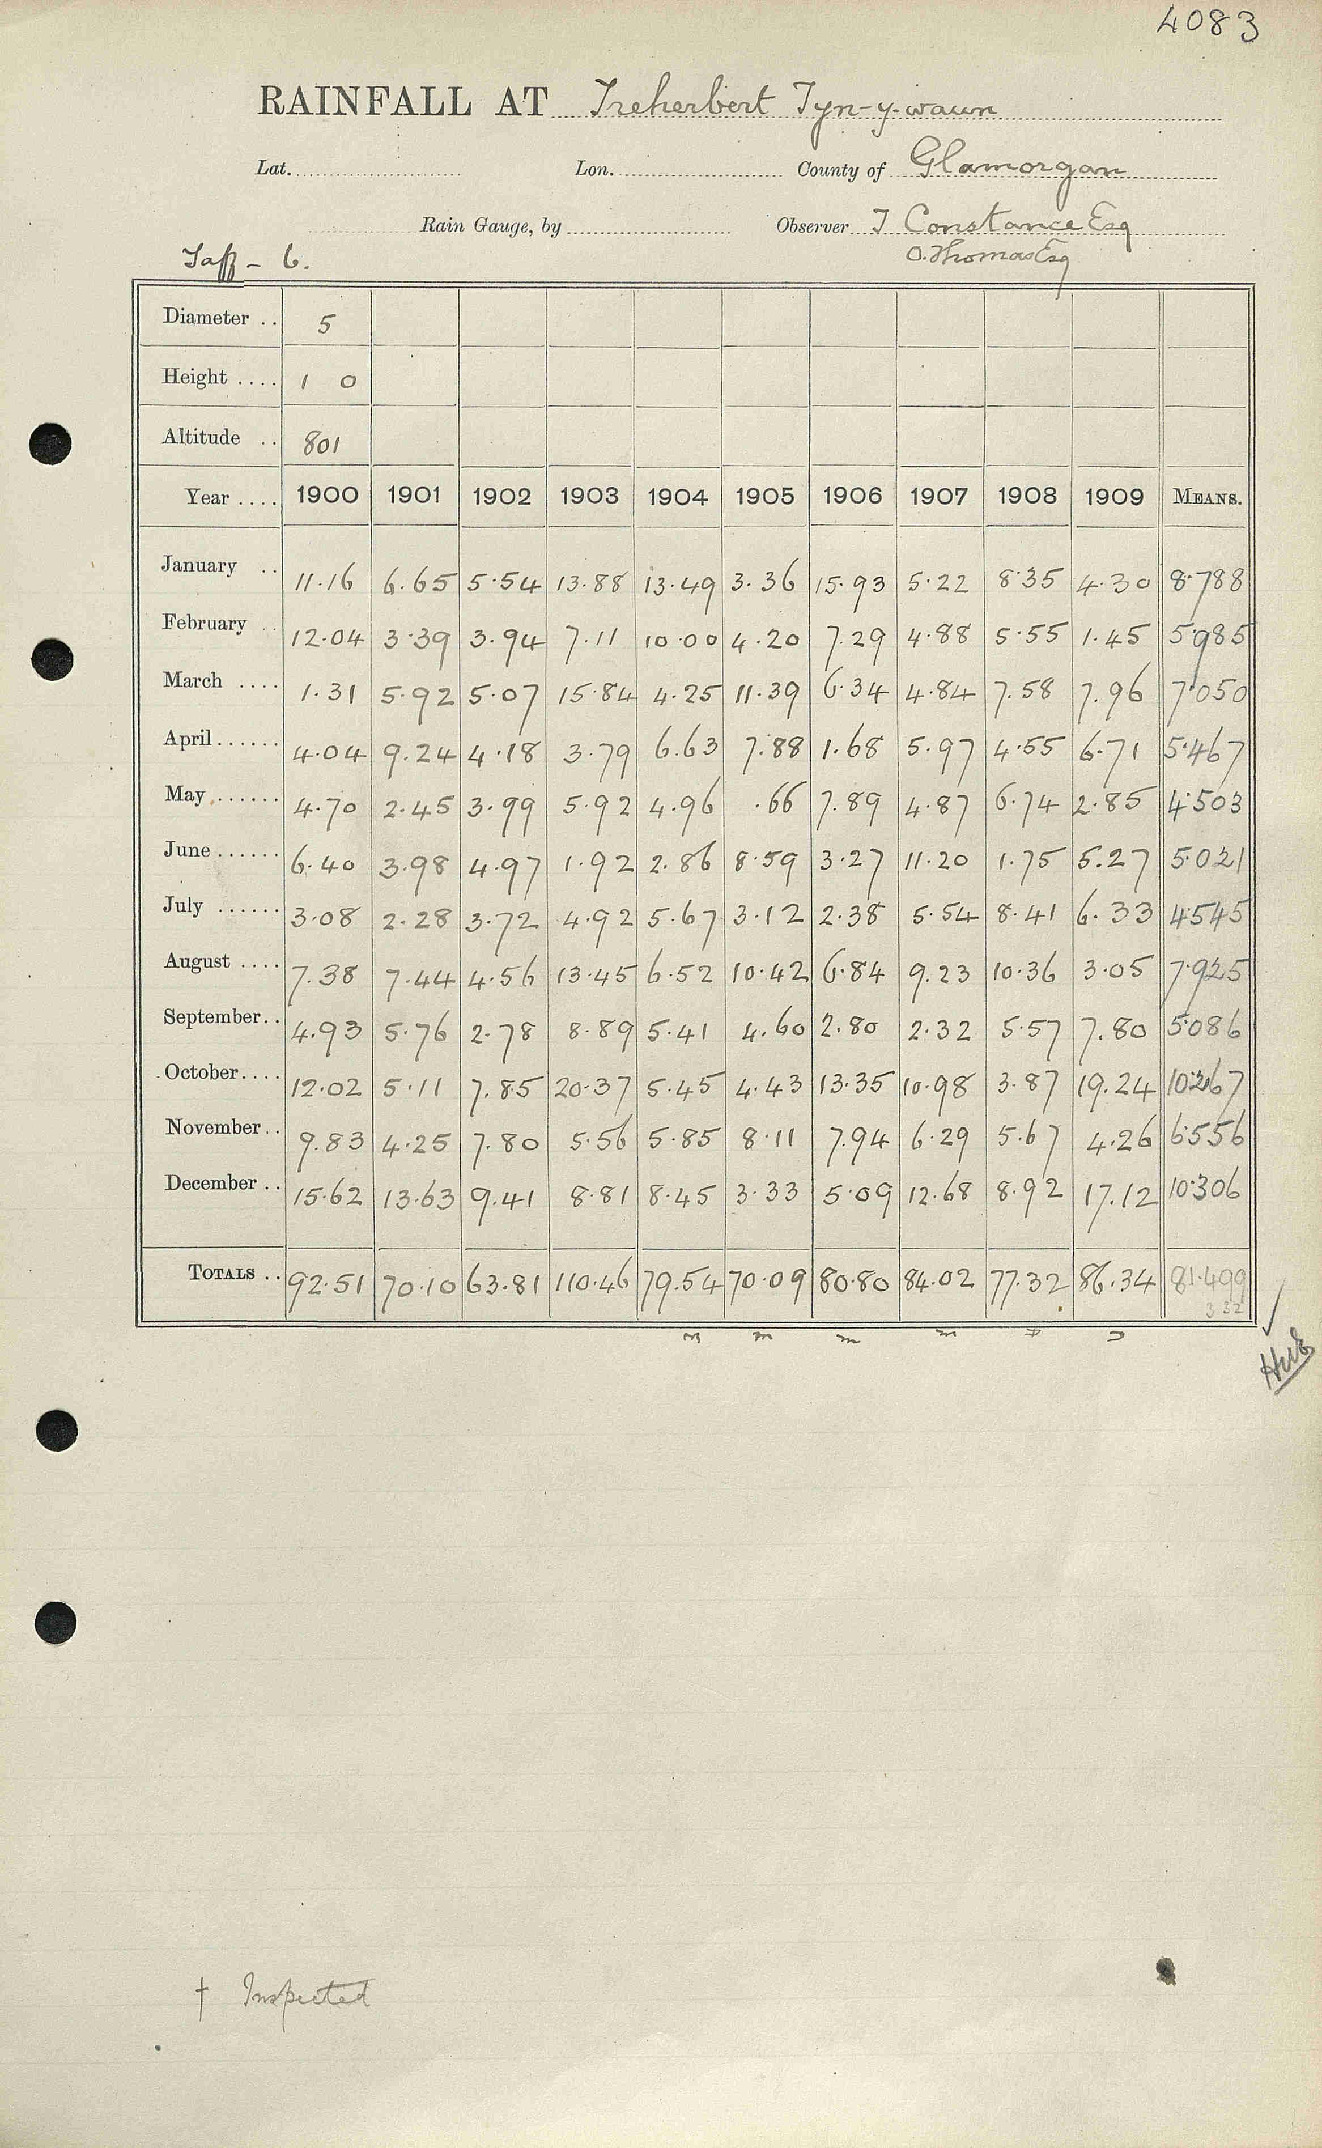 4083
RAINFALL AT Treherbert Tyn-y-waun
Lat. Lon. County of Glamorgan
Rain Gauge, by Observer J Constance Esq
Taff - 6. O. Thomas Esq
Diameter .. 5
Height .... 1 0
Altitude .. 801
Year .... 1900 1901 1902 1903 1904 1905 1906 1907 1908 1909 MEANS.
January .. 11.16 6.65 5.54 13.88 13.49 3.36 15.93 5.22 8.35 4.30 8.788
February .. 12.04 3.39 3.94 7.11 10.00 4.20 7.29 4.88 5.55 1.45 5.985
March .... 1.31 5.92 5.07 15.84 4.25 11.39 6.34 4.84 7.58 7.96 7.050
April...... 4.04 9.24 4.18 3.79 6.63 7.88 1.68 5.97 4.55 6.71 5.467
May ...... 4.70 2.45 3.99 5.92 4.96 .66 7.89 4.87 6.74 2.85 4.503
June...... 6.40 3.98 4.97 1.92 2.86 8.59 3.27 11.20 1.75 5.27 5.021
July ...... 3.08 2.28 3.72 4.92 5.67 3.12 2.38 5.54 8.41 6.33 4.545
August .... 7.38 7.44 4.56 13.45 6.52 10.42 6.84 9.23 10.36 3.05 7.925
September.. 4.93 5.76 2.78 8.89 5.41 4.60 2.80 2.32 5.57 7.80 5.086
October.... 12.02 5.11 7.85 20.37 5.45 4.43 13.35 10.98 3.87 19.24 10.267
November.. 9.83 4.25 7.80 5.56 5.85 8.11 7.94 6.29 5.67 4.26 6.556
December .. 15.62 13.63 9.41 8.81 8.45 3.33 5.09 12.68 8.92 17.12 10.306
TOTALS .. 92.51 70.10 63.81 110.46 79.54 70.09 80.80 84.02 77.32 86.34 81.499
332
† Inspected